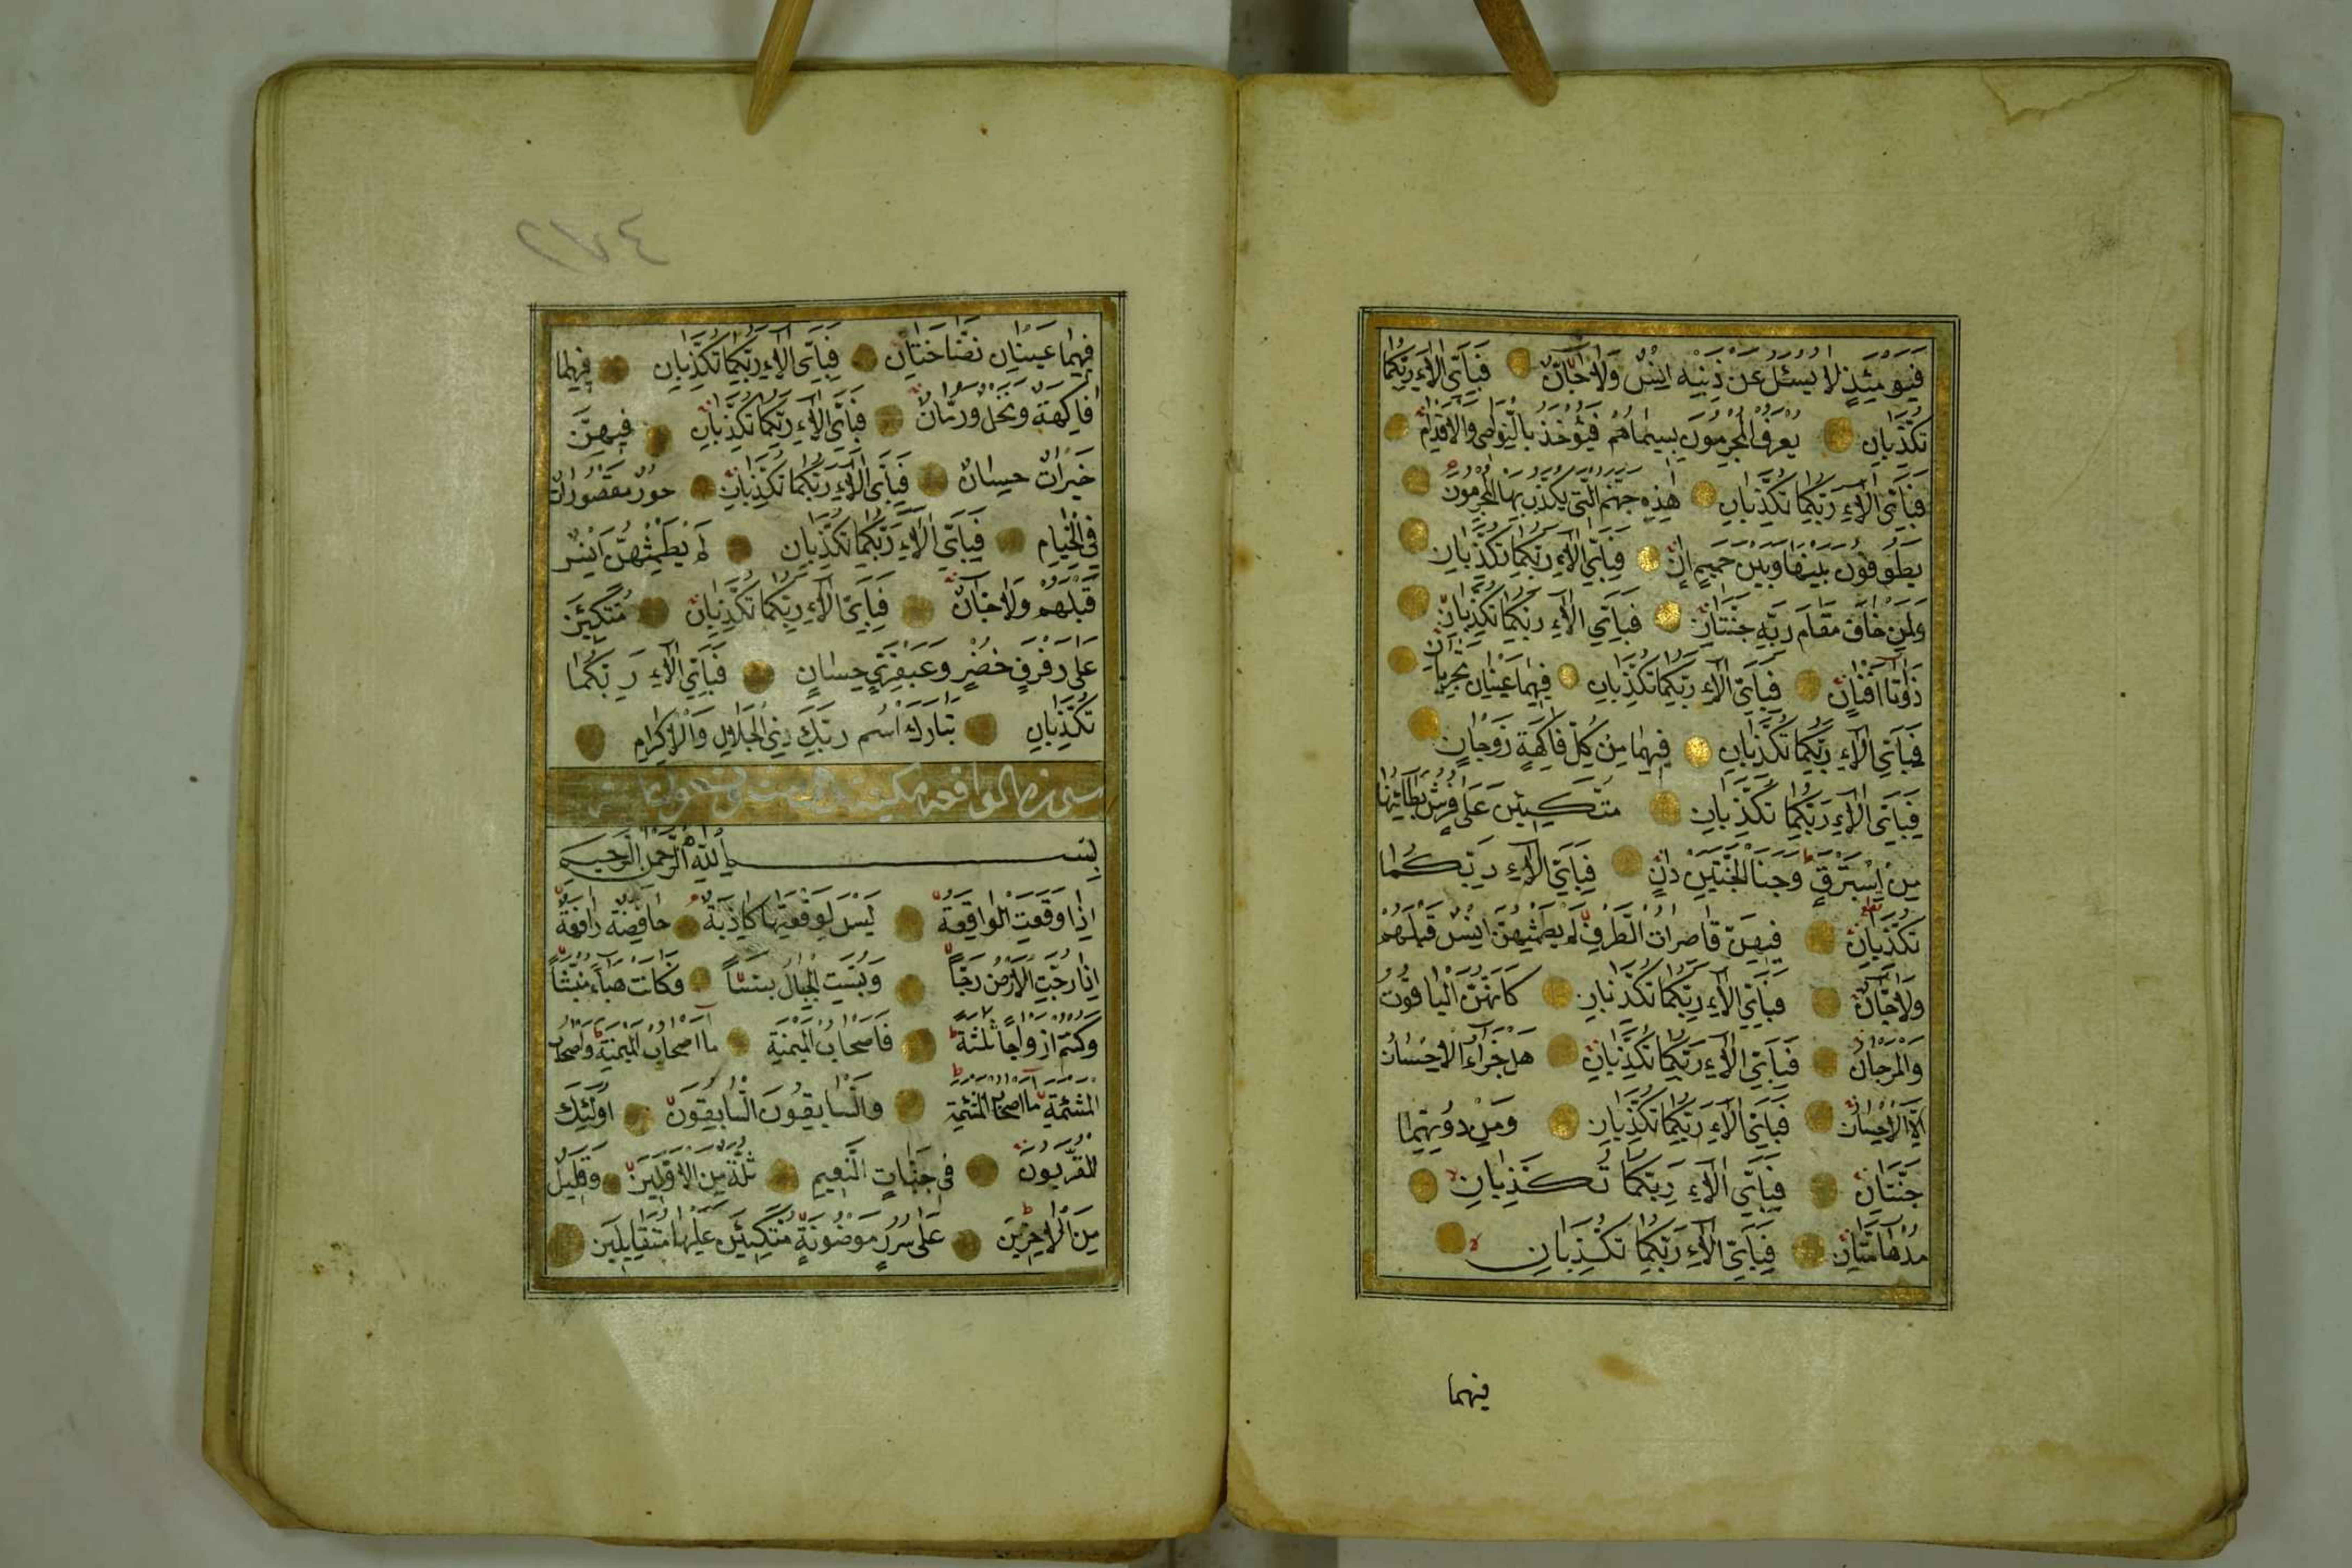 فَيَوْمَئِذٍ لَا يُسْئَلُ عَنْ ذَنْبِهِ اِنْسٌ وَلَا جَانٌّ فَبِاَيِّ اٰلَاءِ رَبِّكُمَا
تُكَذِّبَانِ يُعْرَفُ الْمُجْرِمُونَ بِسِيمَاهُمْ فَيُؤْخَذُ بِالنَّوَاصِى وَالْاَقْدَامِ
فَبِاَيِّ اٰلَاءِ رَبِّكُمَا تُكَذِّبَانِ هٰذِهِ جَهَنَّمُ الَّتِى يُكَذِّبُ بِهَا الْمُجْرِمُونَ
يَطُوفُونَ بَيْنَهَا وَبَيْنَ حَمِيمٍ اٰنٍ فَبِاَيِّ اٰلَاءِ رَبِّكُمَا تُكَذِّبَانِ
وَلِمَنْ خَافَ مَقَامَ رَبِّهِ جَنَّتَانِ فَبِاَيِّ اٰلَاءِ رَبِّكُمَا تُكَذِّبَانِ
ذَوَاتَا اَفْنَانٍ فَبِاَيِّ اٰلَاءِ رَبِّكُمَا تُكَذِّبَانِ فِيهِمَا عَيْنَانِ تَجْرِيَانِ
فَبِاَيِّ اٰلَاءِ رَبِّكُمَا تُكَذِّبَانِ فِيهِمَا مِنْ كُلِّ فَاكِهَةٍ زَوْجَانِ
فَبِاَيِّ اٰلَاءِ رَبِّكُمَا تُكَذِّبَانِ مُتَّكِـِٔينَ عَلَى فُرُشٍ بَطَائِنُهَا
مِنْ اِسْتَبْرَقٍ وَجَنَا الْجَنَّتَيْنِ دَانٍ فَبِاَيِّ اٰلَاءِ رَبِّكُمَا
تُكَذِّبَانِ فِيهِنَّ قَاصِرَاتُ الطَّرْفِ لَمْ يَطْمِثْهُنَّ اِنْسٌ قَبْلَهُمْ
وَلَا جَانٌّ فَبِاَيِّ اٰلَاءِ رَبِّكُمَا تُكَذِّبَانِ كَاَنَّهُنَّ الْيَاقُوتُ
وَالْمَرْجَانُ فَبِاَيِّ اٰلَاءِ رَبِّكُمَا تُكَذِّبَانِ هَلْ جَزَاءُ الْاِحْسَانِ
اِلَّا الْاِحْسَانُ فَبِاَيِّ اٰلَاءِ رَبِّكُمَا تُكَذِّبَانِ وَمِنْ دُونِهِمَا
جَنَّتَانِ فَبِاَيِّ اٰلَاءِ رَبِّكُمَا تُكَذِّبَانِ
مُدْهَامَّتَانِ فَبِاَيِّ اٰلَاءِ رَبِّكُمَا تُكَذِّبَانِ
فيهما
٢٧٤
فِيهِمَا عَيْنَانِ نَضَّاخَتَانِ فَبِاَيِّ اٰلَاءِ رَبِّكُمَا تُكَذِّبَانِ فِيهِمَا
فَاكِهَةٌ وَنَخْلٌ وَرُمَّانٌ فَبِاَيِّ اٰلَاءِ رَبِّكُمَا تُكَذِّبَانِ فِيهِنَّ
خَيْرَاتٌ حِسَانٌ فَبِاَيِّ اٰلَاءِ رَبِّكُمَا تُكَذِّبَانِ حُورٌ مَقْصُورَاتٌ
فِى الْخِيَامِ فَبِاَيِّ اٰلَاءِ رَبِّكُمَا تُكَذِّبَانِ لَمْ يَطْمِثْهُنَّ اِنْسٌ
قَبْلَهُمْ وَلَا جَانٌّ فَبِاَيِّ اٰلَاءِ رَبِّكُمَا تُكَذِّبَانِ مُتَّكِئِينَ
عَلَى رَفْرَفٍ خُضْرٍ وَعَبْقَرِيٍّ حِسَانٍ فَبِاَيِّ اٰلَاءِ رَبِّكُمَا
تُكَذِّبَانِ تَبَارَكَ اسْمُ رَبِّكَ ذِى الْجَلَالِ وَالْاِكْرَامِ
سورة الواقعة مكية
بِسْمِ اللّٰهِ الرَّحْمٰنِ الرَّحِيمِ
اِذَا وَقَعَتِ الْوَاقِعَةُ لَيْسَ لِوَقْعَتِهَا كَاذِبَةٌ خَافِضَةٌ رَافِعَةٌ
اِذَا رُجَّتِ الْاَرْضُ رَجًّا وَبُسَّتِ الْجِبَالُ بَسًّا فَكَانَتْ هَبَاءً مُنْبَثًّا
وَكُنْتُمْ اَزْوَاجًا ثَلٰثَةً فَاَصْحَابُ الْمَيْمَنَةِ مَا اَصْحَابُ الْمَيْمَنَةِ وَاَصْحَابُ
الْمَشْئَمَةِ مَا اَصْحَابُ الْمَشْئَمَةِ وَالسَّابِقُونَ السَّابِقُونَ اُولٰئِكَ
الْمُقَرَّبُونَ فِى جَنَّاتِ النَّعِيمِ ثُلَّةٌ مِنَ الْاَوَّلِينَ وَقَلِيلٌ
مِنَ الْاٰخِرِينَ عَلَى سُرُرٍ مَوْضُونَةٍ مُتَّكِئِينَ عَلَيْهَا مُتَقَابِلِينَ